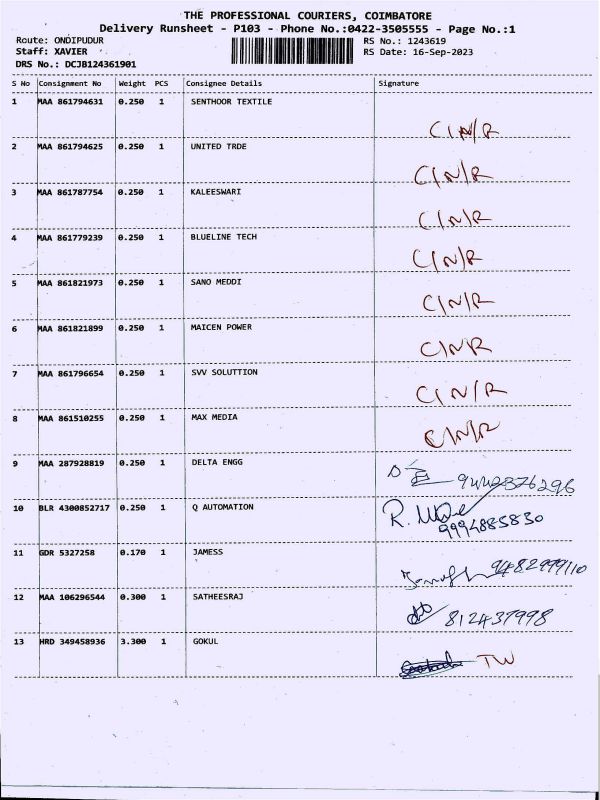 THE PROFESSIONAL COURIERS, COIMBATORE
Delivery Runsheet - P103 - Phone No.:0422-3505555 - Page No.:1
Route: ONDIPUDUR RS No.: 1243619
Staff: XAVIER RS Date: 16-Sep-2023
DRS No.: DCJB124361901
S No Consignment No Weight PCS Consignee Details Signature
1 MAA 861794631 0.250 1 SENTHOOR TEXTILE
C/N/R
2 MAA 861794625 0.250 1 UNITED TRDE
C/N/R
3 MAA 861787754 0.250 1 KALEESWARI
C/N/R
4 MAA 861779239 0.250 1 BLUELINE TECH
C/N/R
5 MAA 861821973 0.250 1 SANO MEDDI
C/N/R
6 MAA 861821899 0.250 1 MAICEN POWER
C/N/R
7 MAA 861796654 0.250 1 SVV SOLUTTION
C/N/R
8 MAA 861510255 0.250 1 MAX MEDIA
C/N/R
9 MAA 287928819 0.250 1 DELTA ENGG
9442876296
10 BLR 4300852717 0.250 1 Q AUTOMATION
R.
9994885830
11 GDR 5327258 0.170 1 JAMESS
9482999110
12 MAA 106296544 0.300 1 SATHEESRAJ
812437998
13 HRD 349458936 3.300 1 GOKUL
TW